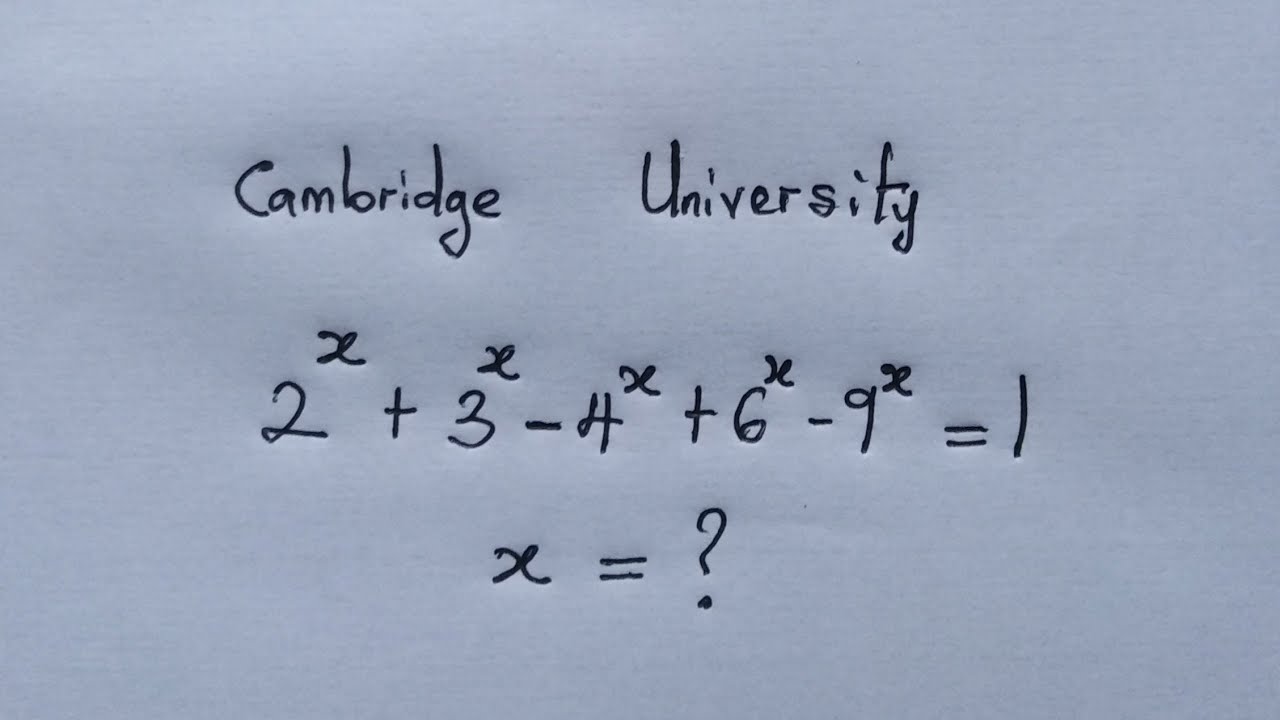 Cambridge University
2ˣ + 3ˣ - 4ˣ + 6ˣ - 9ˣ = 1
x = ?